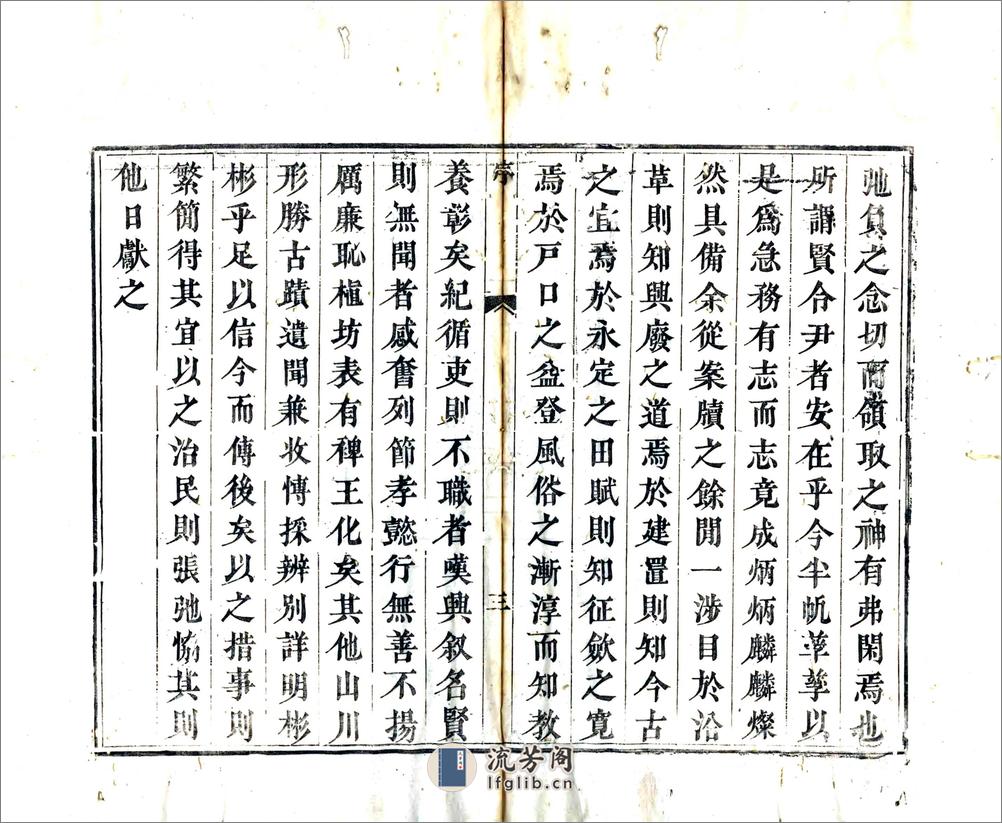 弛負之念切而領取之神有弗閑焉也
所謂賢令尹者安在乎今半帆莘孳以
是爲急務有志而志竟成炳炳麟麟燦
然具備余從案牘之餘閒一涉目於沿
草則知興廢之道焉於建置則知今古
之宜焉於永定之田賦則知征斂之寬
焉於戸口之益登風俗之漸淳而知教
序
三
養彰矣紀循吏則不職者嘆興叙名賢
則無聞者感奮列節孝懿行無善不揚
厲廉恥植坊表有禆王化矣其他山川
形勝古蹟遺聞兼收慱採辨別詳明彬
彬乎足以信今而傳後矣以之措事則
繁簡得其宜以之治民則張弛恊其則
他日獻之
流芳阁
lfglib.cn